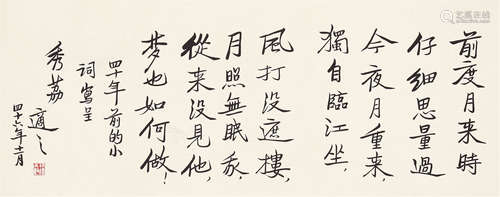 前度月来時
仔細思量過
今夜月重来，
獨自臨江坐，
風打没遮樓，
月照無眠我，
從来没見他，
梦也如何做！
四十年前的小
詞寫呈
秀荔
適之
四十六年十一月